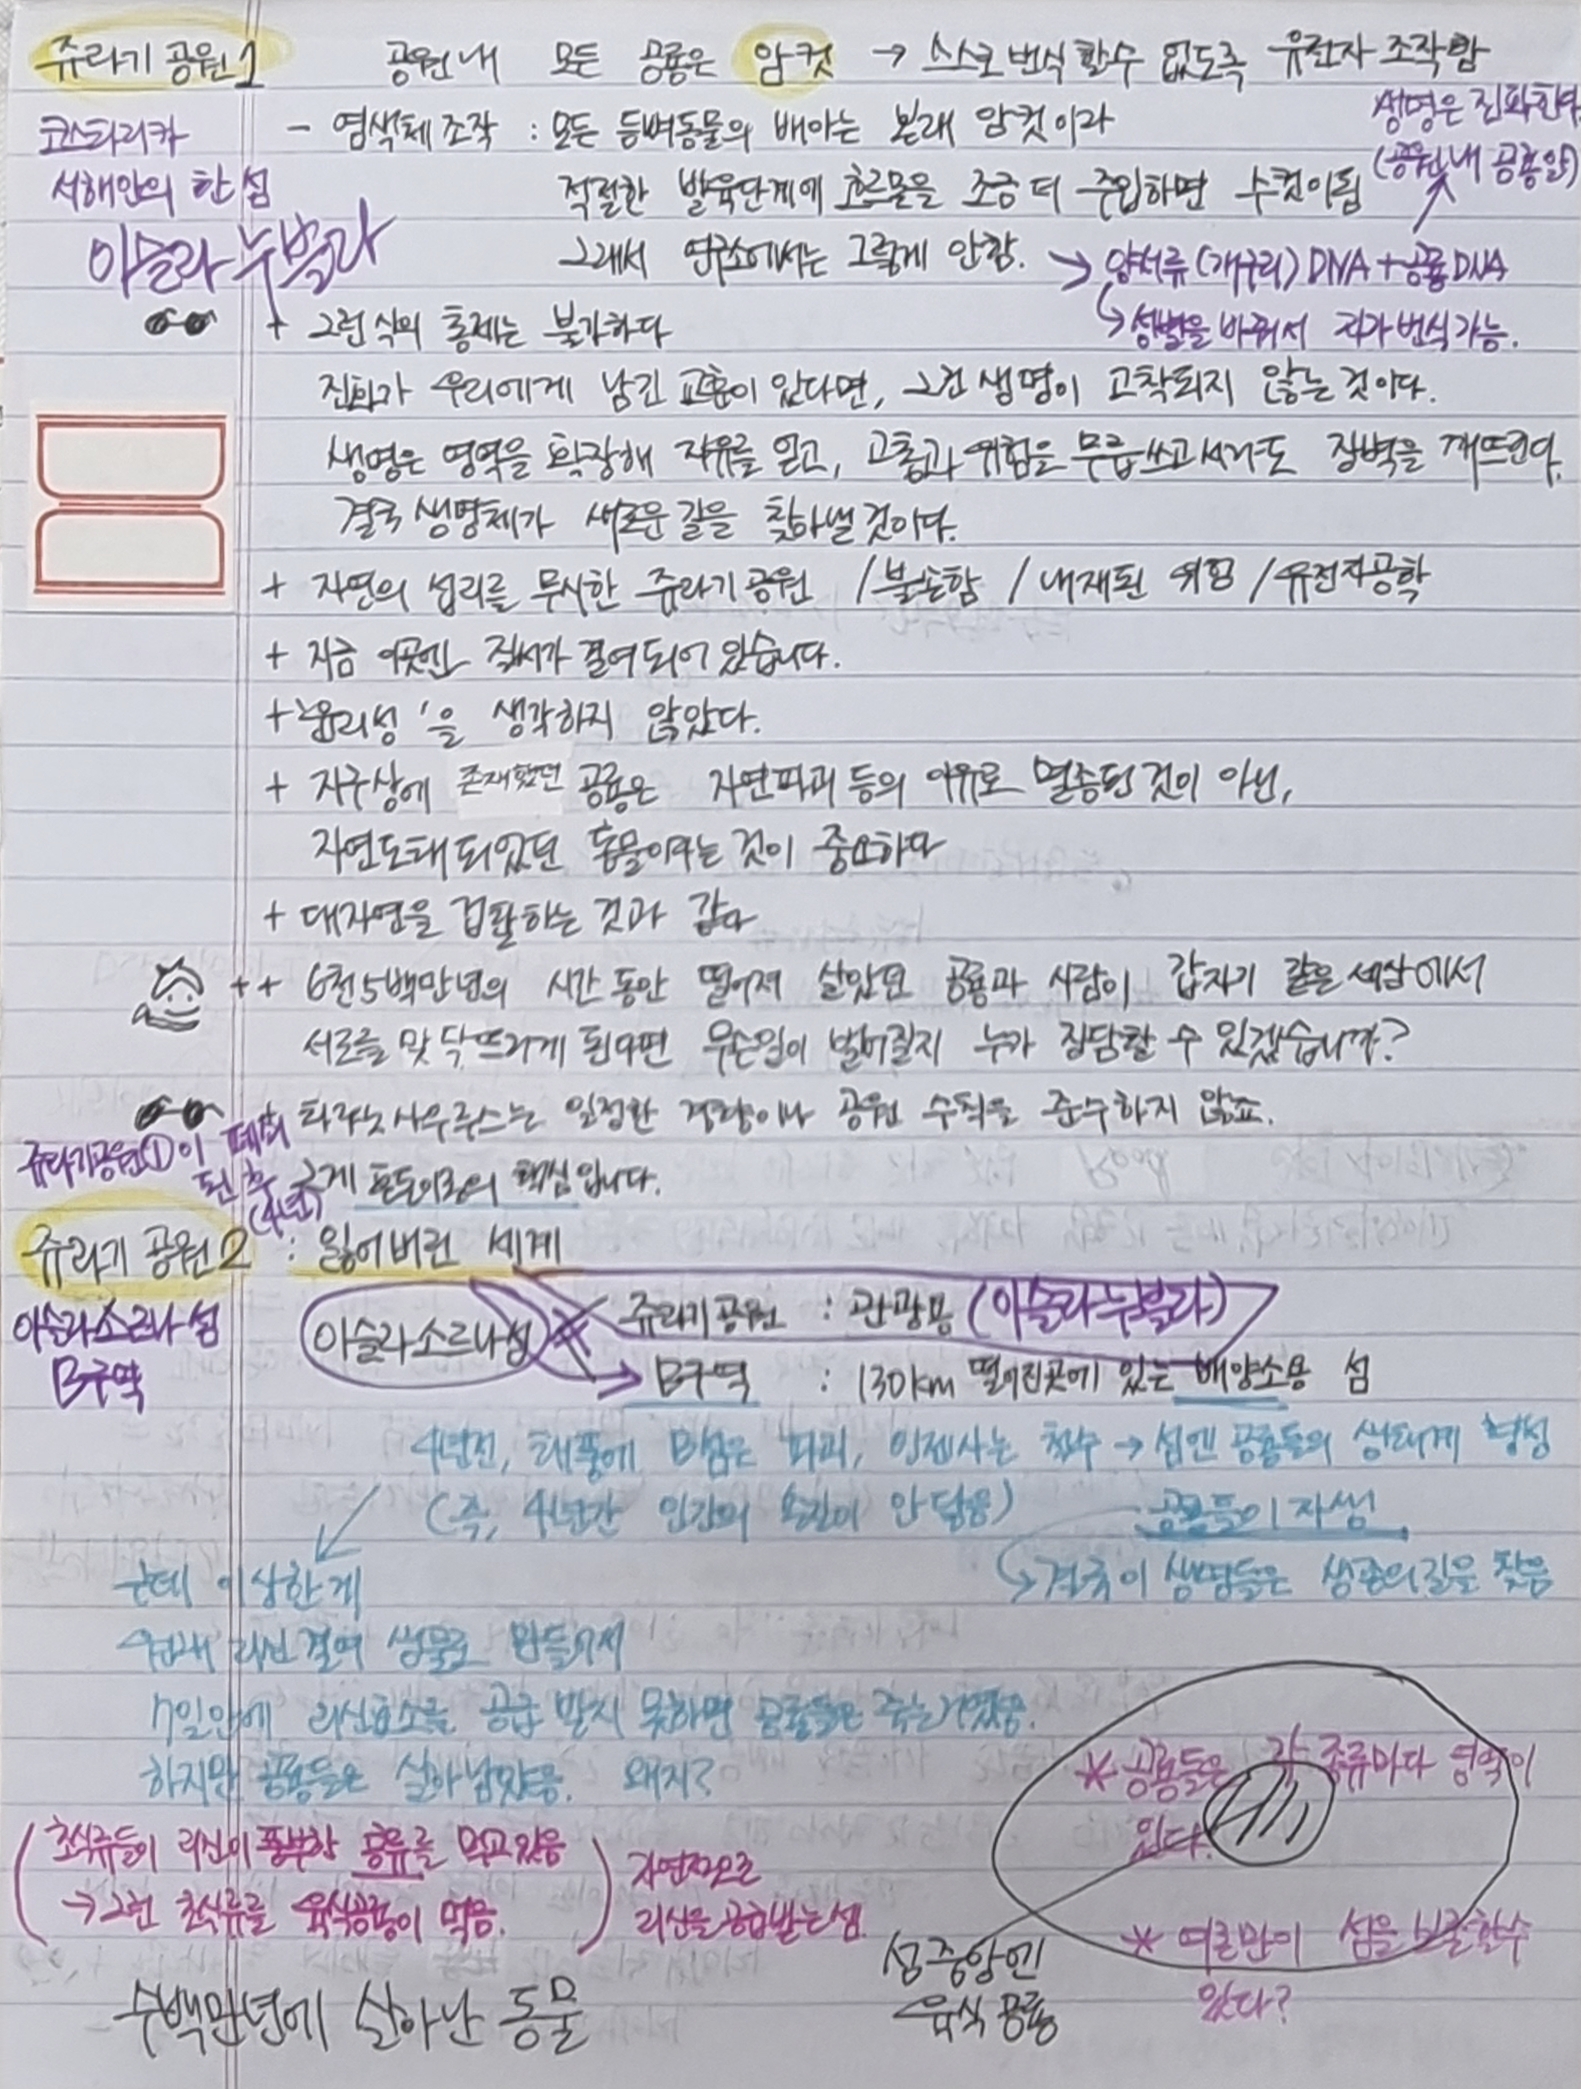 쥬라기 공원1
공원 내 모든 공룡은 암컷 → 스스로 번식 할수 없도록 유전자 조작함
코스타리카
서해안의 한 섬
이슬라 누블라
- 염색체 조작 : 모든 등벽동물의 배아는 본래 암컷이라
적절한 발육단계에 호르몬을 조금 더 주입하면 수컷이됨
그래서 연구소에서는 그렇게 안함.
생명은 진화한다
(공원내 공룡알)
→ 양서류(개구리) DNA + 공룡 DNA
↳ 성별을 바꿔서 자가 번식 가능.
+ 그런 식의 통제는 불가하다
진화가 우리에게 남긴 교훈이 있다면, 그건 생명이 고착되지 않는 것이다.
생명은 영역을 확장해 자유를 얻고, 고통과 위험을 무릅쓰고서라도 장벽을 깨뜨린다.
결국 생명체가 새로운 길을 찾아낼 것이다.
+ 자연의 섭리를 무시한 쥬라기 공원 / 불손함 / 내재된 위험 / 유전자공학
+ 지금 이곳엔 질서가 결여되어 있습니다.
+ '윤리성'을 생각하지 않았다.
+ 지구상에 존재했던 공룡은 자연파괴 등의 이유로 멸종된 것이 아닌,
자연도태 되었던 동물이라는 것이 중요하다
+ 대자연을 겁탈하는 것과 같다
++ 6천5백만년의 시간 동안 떨어져 살았던 공룡과 사람이 갑자기 같은 세상에서
서로를 맞닥뜨리게 된다면 무슨일이 벌어질지 누가 장담할 수 있겠습니까?
+ 티라노사우루스는 일정한 경향이나 공원 수칙을 준수하지 않죠.
그게 혼돈이론의 핵심입니다.
쥬라기공원①이 폐쇄
된 후
(4년)
쥬라기 공원2 : 잃어버린 세계
이슬라소르나 섬
B구역
이슬라소르나섬
쥬라기공원 : 관광용 (이슬라누블라)
→ B구역 : 130km 떨어진곳에 있는 배양소용 섬
4년전, 태풍에 B섬은 파괴, 인젠사는 철수 → 섬엔 공룡들의 생태계 형성
(즉, 4년간 인간의 손길이 안 닿음)
공룡들이 자생
↳ 결국 이 생명들은 생존의 길을 찾음
근데 이상한게
원래 리신 결여 생물로 만들어서
7일안에 리신효소를 공급 받지 못하면 공룡들은 죽는거였음.
하지만 공룡들은 살아남았음. 왜지?
(초식류들이 리신이 풍부한 콩류를 먹고 있음
→ 그런 초식류를 육식공룡이 먹음.)
자연적으로
리신을 공급받는 셈.
* 공룡들은 각 종류마다 영역이
있다.
* 어른만이 섬을 보호할수
있다?
섬 중앙엔
육식 공룡
수백만년에 살아난 동물